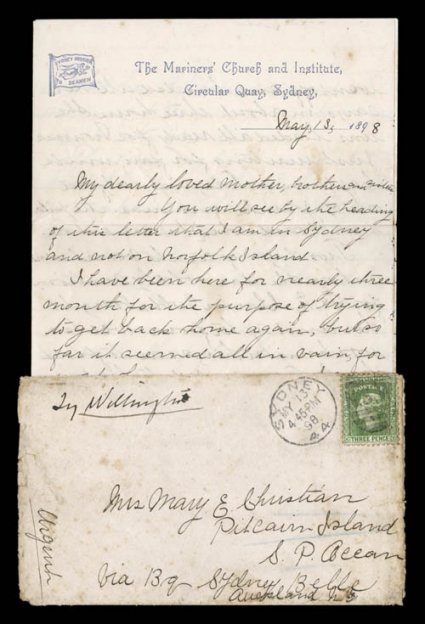 SYDNEY MISSION
TO SEAMEN
The Mariners' Church and Institute,
Circular Quay, Sydney,
May, 13, 1898
My dearly loved Mother, brother and sister
You will see by the heading
of this letter that I am in Sydney
and not on Norfolk Island.
I have been here for nearly three
month for the purpose of trying
to get back home again, but so
far it seemed all in vain, for
By Wellington
SYDNEY
MY 13
4.45PM
98
44
POSTAGE
THREE PENCE
Urgent
Mrs Mary E Christian
Pitcairn Island
S. P. Ocean
Via Bq Sydney Belle
Auckland NZ